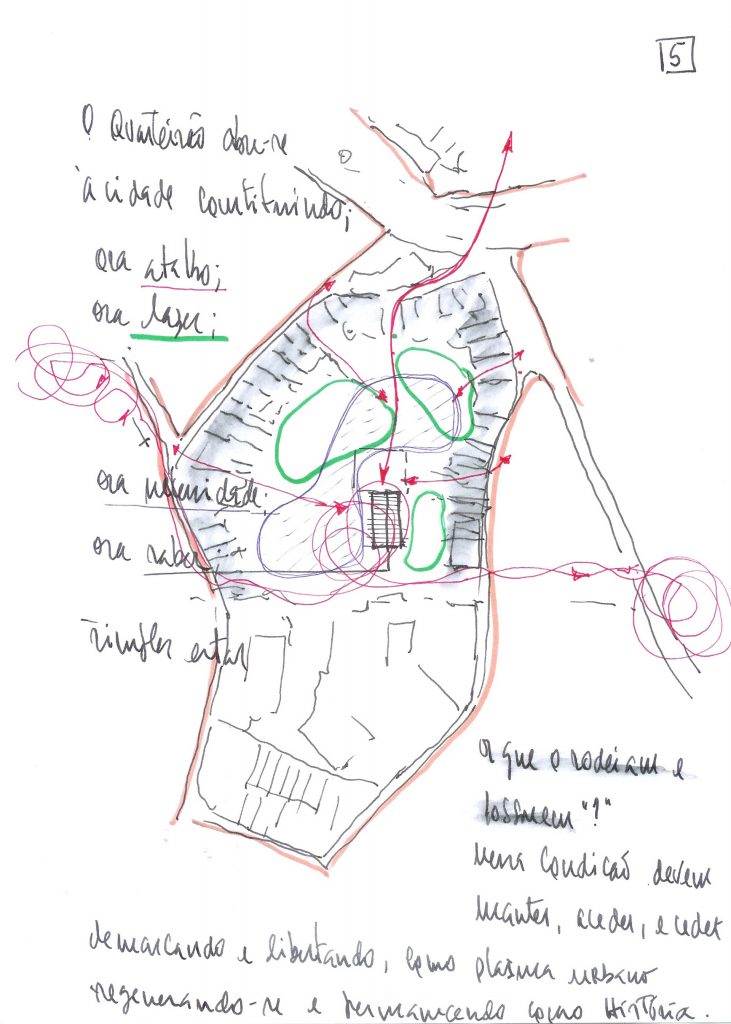 5
O Quarteirão abre-se
à cidade constituindo;
ora atalho;
ora lazer;
ora urbanidade;
ora sabor;
simples estar
os que o rodeiam e
possuem "!"
nessa condição devem
manter, aceder, e ceder
demarcando e libertando, como plasma urbano
regenerando-se e permanecendo como História.